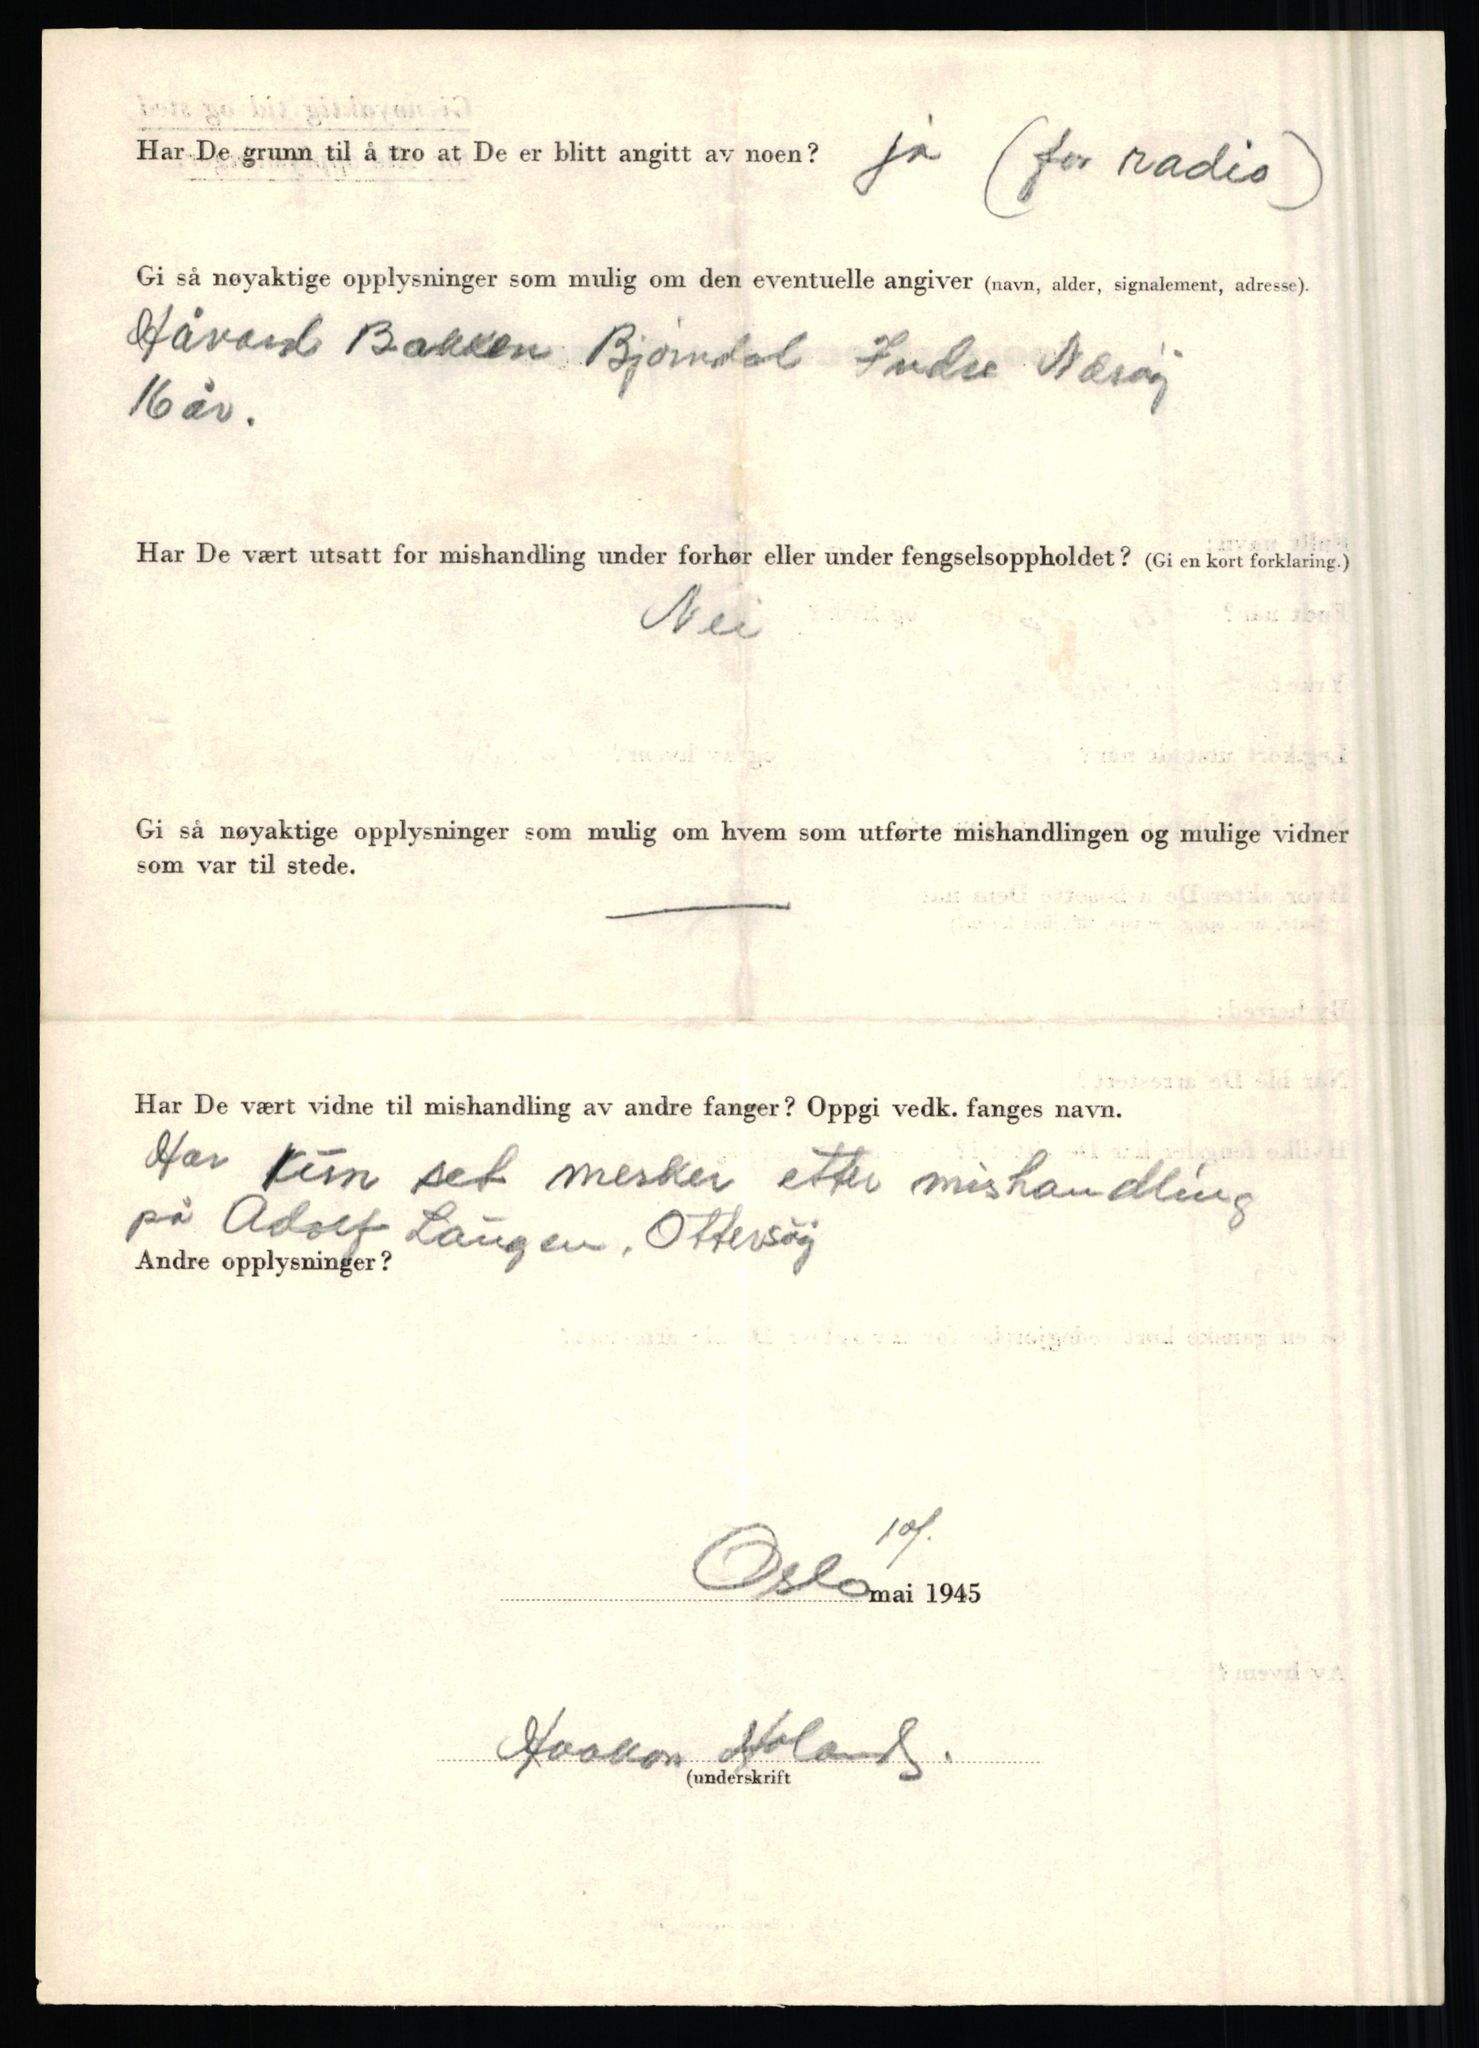 Har De grunn til å tro at De er blitt angitt av noen? ja (for radio)
Gi så nøyaktige opplysninger som mulig om den eventuelle angiver (navn, alder, signalement, adresse).
Håvard Bakken Bjørndal Indre Nærøy
16 år.
Har De vært utsatt for mishandling under forhør eller under fengselsoppholdet? (Gi en kort forklaring.)
Nei
Gi så nøyaktige opplysninger som mulig om hvem som utførte mishandlingen og mulige vidner
som var til stede.
Har De vært vidne til mishandling av andre fanger? Oppgi vedk. fanges navn.
Har kun set merker etter mishandling
på Adolf Laugen, Ottersøy
Andre opplysninger?
Oslo mai 1945
Haakon Moland.
(underskrift